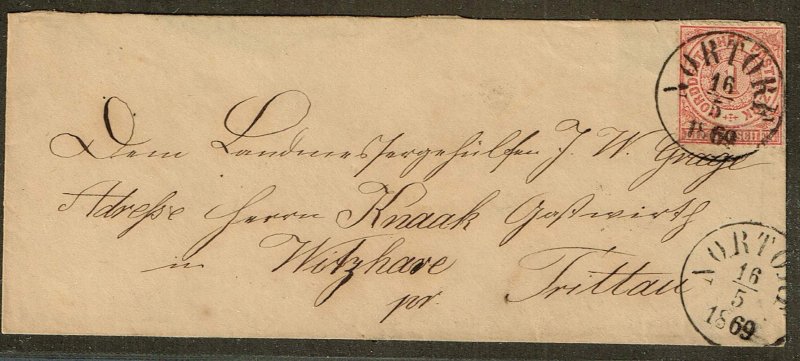 NORDD
NORTORF
16
5
1869
Dem Landmessergehülfen J. W. Grage
Adresse Herrn Knaak Gastwirth
in Witzhave
pr. Trittau
NORTORF
16
5
1869